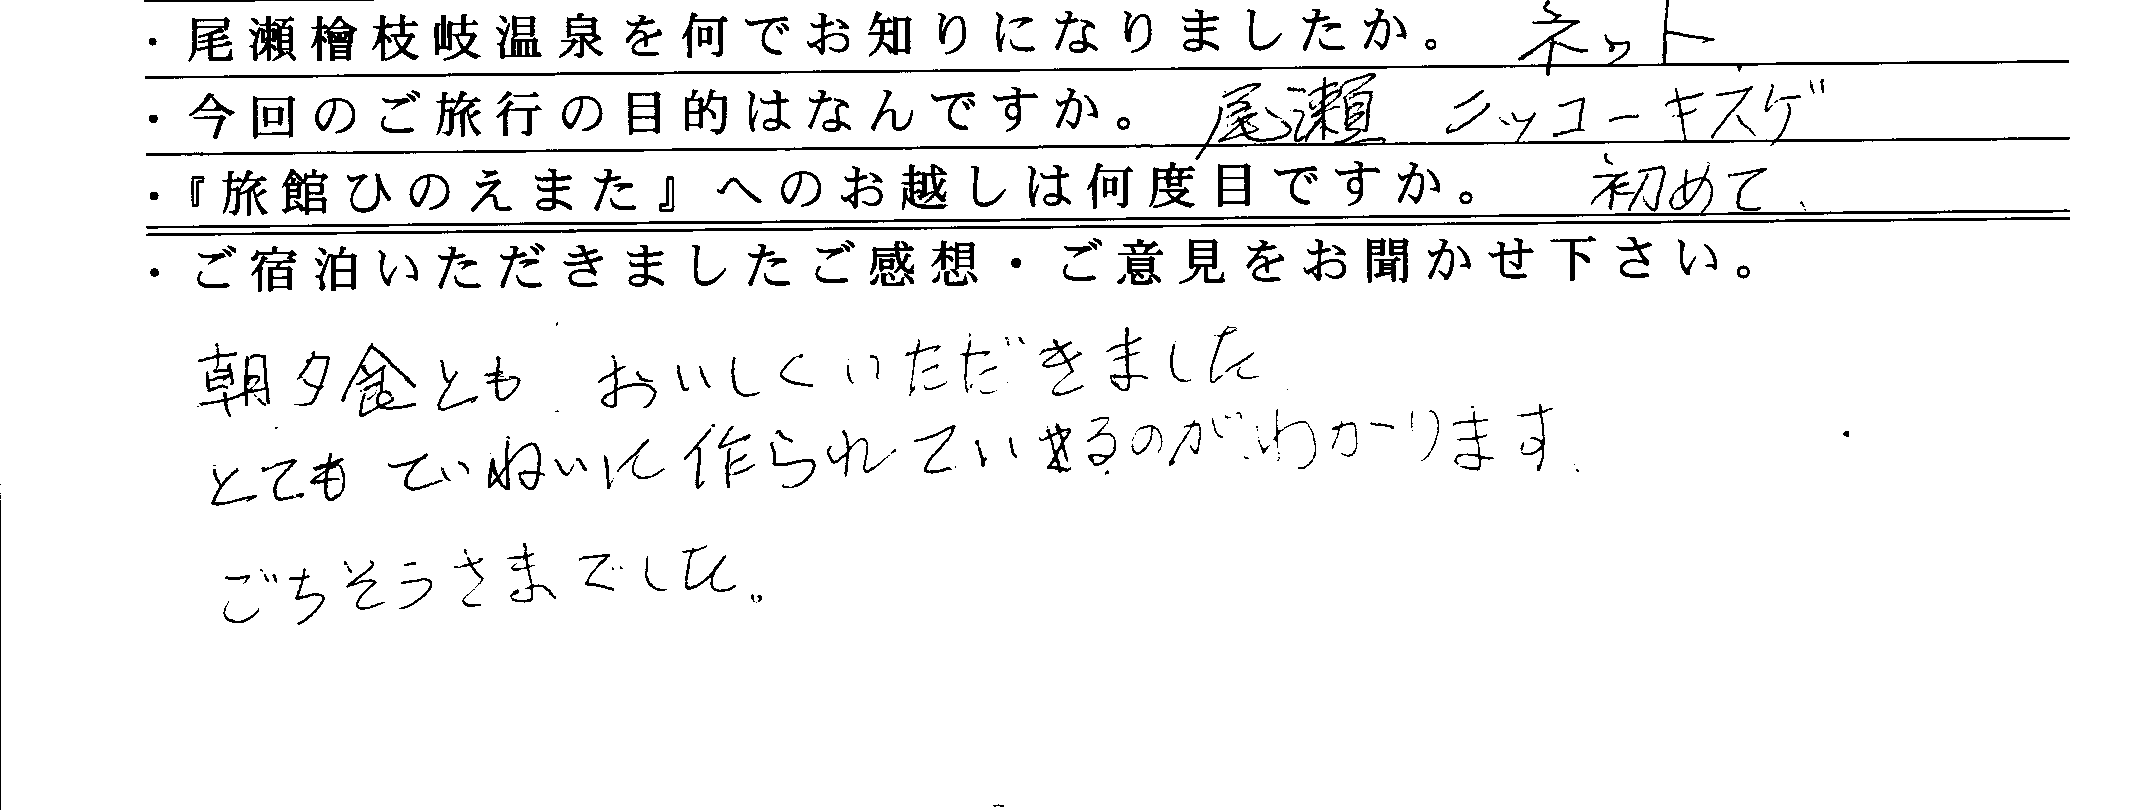 ・尾瀬檜枝岐温泉を何でお知りになりましたか。 ネット
・今回のご旅行の目的はなんですか。 尾瀬 ニッコーキスゲ
・『旅館ひのえまた』へのお越しは何度目ですか。 初めて、
・ご宿泊いただきましたご感想・ご意見をお聞かせ下さい。
朝夕食とも おいしくいただきました
とてもていねいに作られているのがわかります.
ごちそうさまでした。